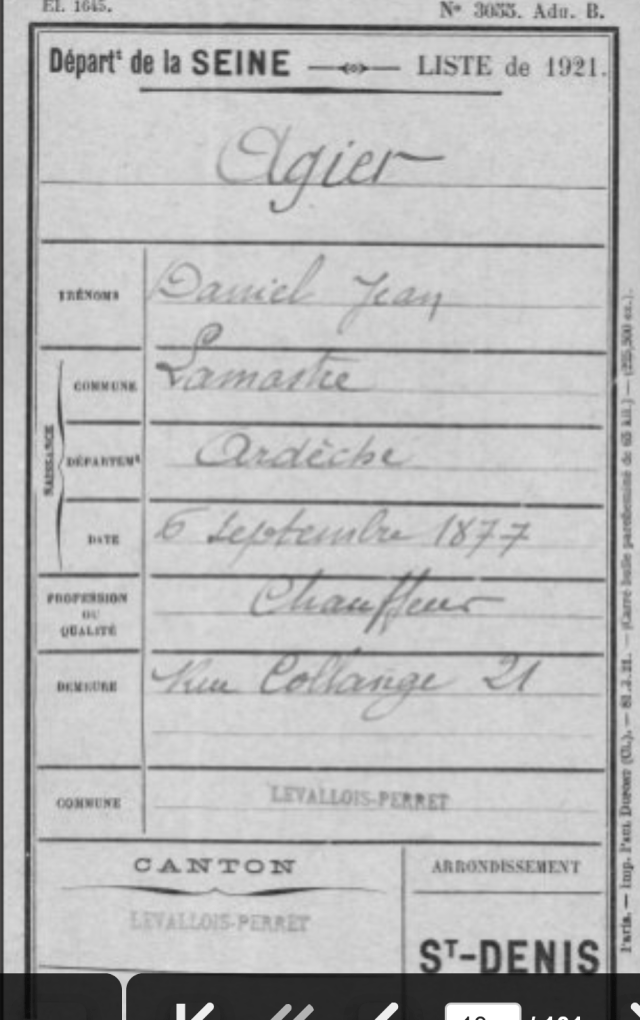 El. 1645.
N° 3033. Adn. B.
Départᵗ de la SEINE LISTE de 1921.
Agier
PRÉNOMS
Daniel Jean
NAISSANCE
COMMUNE
Lamastre
DÉPARTEMᵗ
Ardèche
DATE
6 septembre 1877
PROFESSION
OU
QUALITÉ
Chauffeur
DEMEURE
Rue Collange 21
COMMUNE
LEVALLOIS-PERRET
CANTON
LEVALLOIS-PERRET
ARRONDISSEMENT
Sᵀ-DENIS
Paris. — Imp. Paul DUPONT (Cl.). — 81.2.21. — (Carré bulle parcheminé de 65 kil.) — (225,500 ex.).